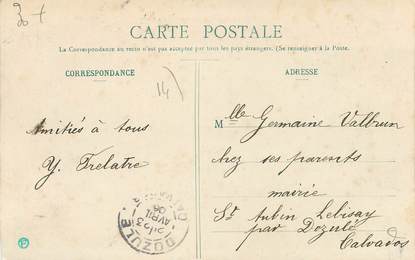 CARTE POSTALE
La Correspondance au recto n'est pas acceptée par tous les pays étrangers. (Se renseigner à la Poste.
CORRESPONDANCE
ADRESSE
14
Amitiés à tous
Y. Trelatre
Mlle Germaine Valbrun
chez ses parents
mairie
St Aubin Lebisay
par Dozulé
Calvados
DOZULE
AVRIL
CALVADOS